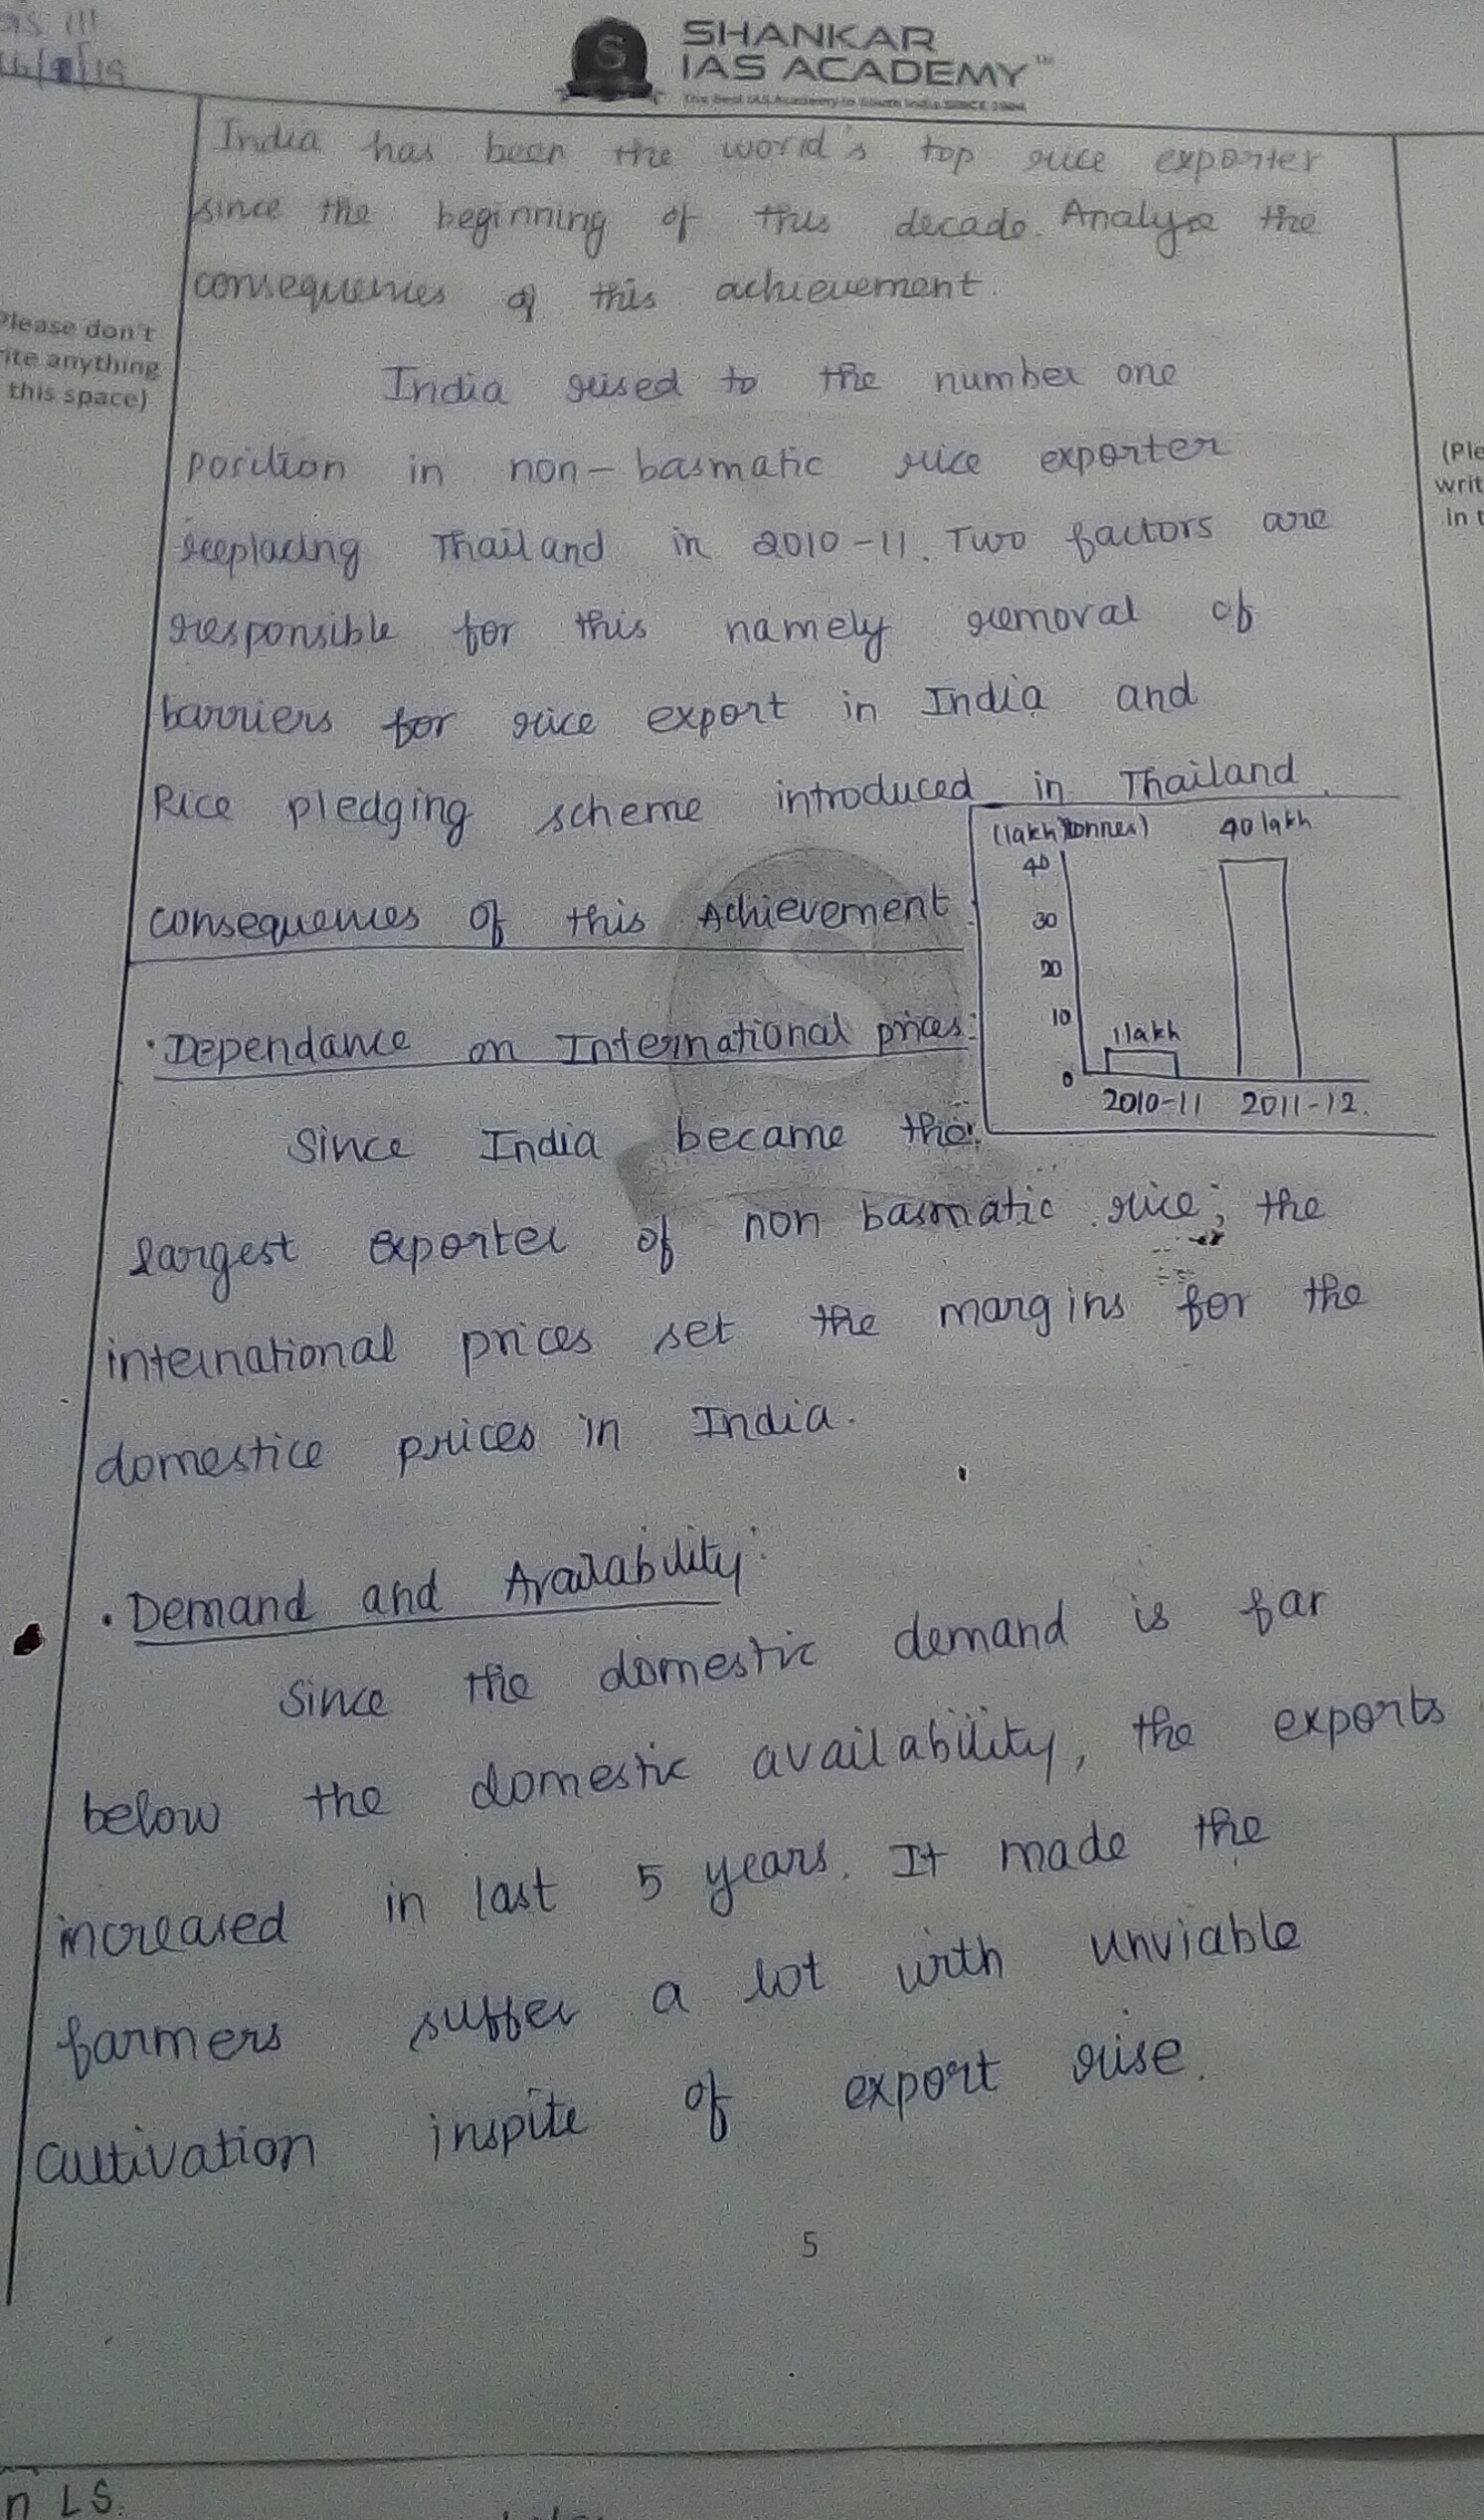 SHANKAR
IAS ACADEMY™
The Best IAS Academy in South India SINCE 2004
India has been the world's top rice exporter
since the beginning of this decade. Analyse the
consequences of this achievement.
Please don't
rite anything
this space)
India rised to the number one
position in non-basmatic rice exporter
(Ple
writ
in t
replacing Thailand in 2010-11. Two factors are
responsible for this namely removal of
barriers for rice export in India and
Rice pledging scheme introduced in Thailand.
(lakh tonnes)
40 lakh
40
30
20
10
0
1 lakh
2010-11 2011-12.
consequences of this Achievement:
· Dependance on International prices:
Since India became the
largest exporter of non basmatic rice, the
international prices set the margins for the
domestice prices in India.
· Demand and Availability:
Since the domestic demand is far
below the domestic availability, the exports
increased in last 5 years. It made the
farmers suffer a lot with unviable
cultivation inspite of export rise.
5
n LS.